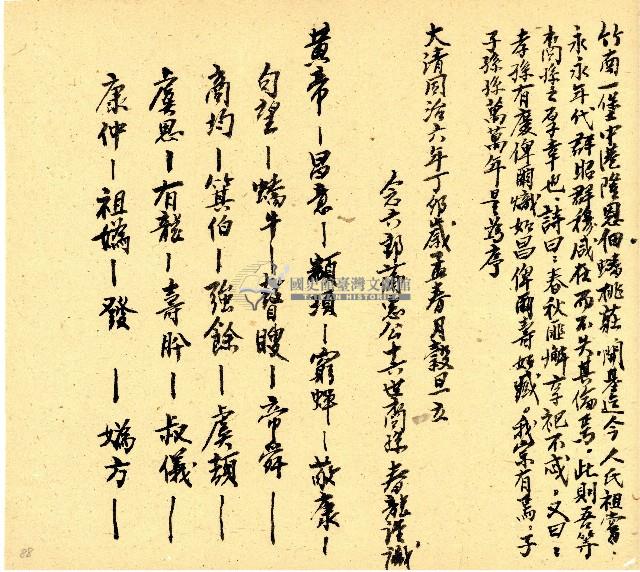 竹南一堡中港隆恩佃蟠桃莊開基迄今人氏祖嘗。
永永年代群昭群穆咸在而不失其倫焉。此則吾等
裔孫之厚幸也。詩曰：春秋匪懈享祀不忒。又曰：
孝孫有慶俾爾熾如昌俾爾壽如臧。我宗有焉。子
子孫孫萬萬年是為序
大清同治六年丁卯歲孟春月穀旦立
念六郎 公十六世裔孫春龍謹識
黃帝—昌意—顓頊—窮蟬—敬康—
句望—蟜牛—瞽瞍—帝舜—
商均—箕伯—強餘—虞頡—
虞思—有龍—壽昕—叔儀—
康仲—祖媯—發—媯方—
國史館臺灣文獻館
TAIWAN HISTORICA
88